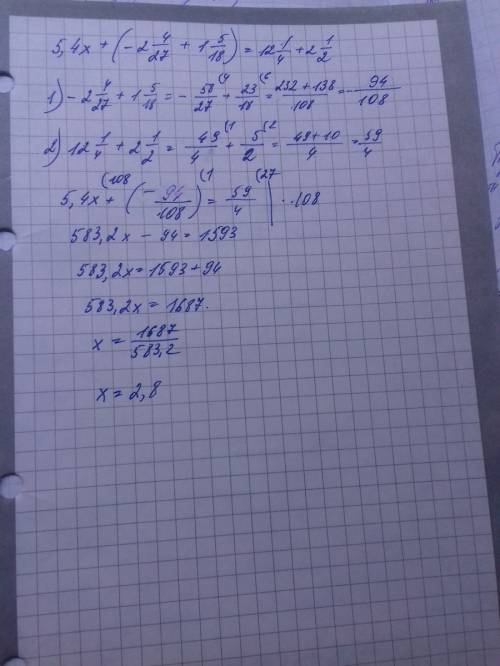 5,4x + (-2 4/27 + 1 5/18) = 12 1/4 + 2 1/2
1) -2 4/27 + 1 5/18 = - 58/27 (4 + 23/18 (6 = 232+138/108 = - 94/108
2) 12 1/4 + 2 1/2 = 49/4 (1 + 5/2 (2 = 49+10/4 = 59/4
5,4x (108 + (- 94/108) (1 = 59/4 (27 | · 108
583,2x - 94 = 1593
583,2x = 1593 + 94
583,2x = 1687.
x = 1687/583,2
x = 2,8